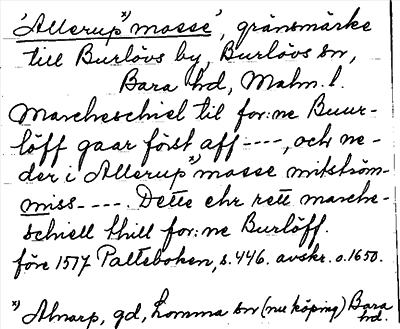 'Allerup*) mosse', gränsmärke
till Burlövs by, Burlövs sn,
Bara hd, Malm. l.
Marcheschiel til for:ne Buur-
löff gaar först aff ----, och ne-
der i Allerup*) mosse mitström-
miss ----. Dette ehr rett marche-
schiell thill for:ne Burlöff.
före 1517 Palteboken, s. 446. avskr. o. 1650.
*) Alnarp, gd, Lomma sn (nu köping) Bara
hd.